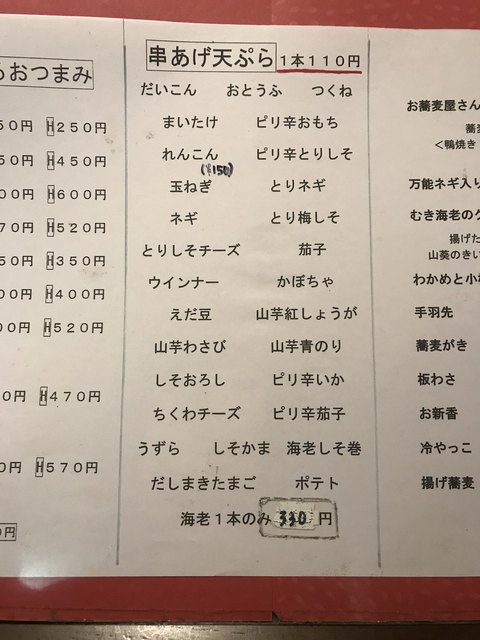 おつまみ
50円 H250円
50円 H450円
00円 H600円
70円 H520円
50円 H350円
00円 H400円
00円 H520円
0円 H470円
0円 H570円
0円
串あげ天ぷら 1本110円
だいこん おとうふ つくね
まいたけ ピリ辛おもち
れんこん ピリ辛とりしそ
(¥150)
玉ねぎ とりネギ
ネギ とり梅しそ
とりしそチーズ 茄子
ウインナー かぼちゃ
えだ豆 山芋紅しょうが
山芋わさび 山芋青のり
しそおろし ピリ辛いか
ちくわチーズ ピリ辛茄子
うずら しそかま 海老しそ巻
だしまきたまご ポテト
海老1本のみ 330円
お蕎麦屋さん
蕎麦
<鴨焼き
万能ネギ入り
むき海老の
揚げた
山葵のきい
わかめと小
手羽先
蕎麦がき
板わさ
お新香
冷やっこ
揚げ蕎麦